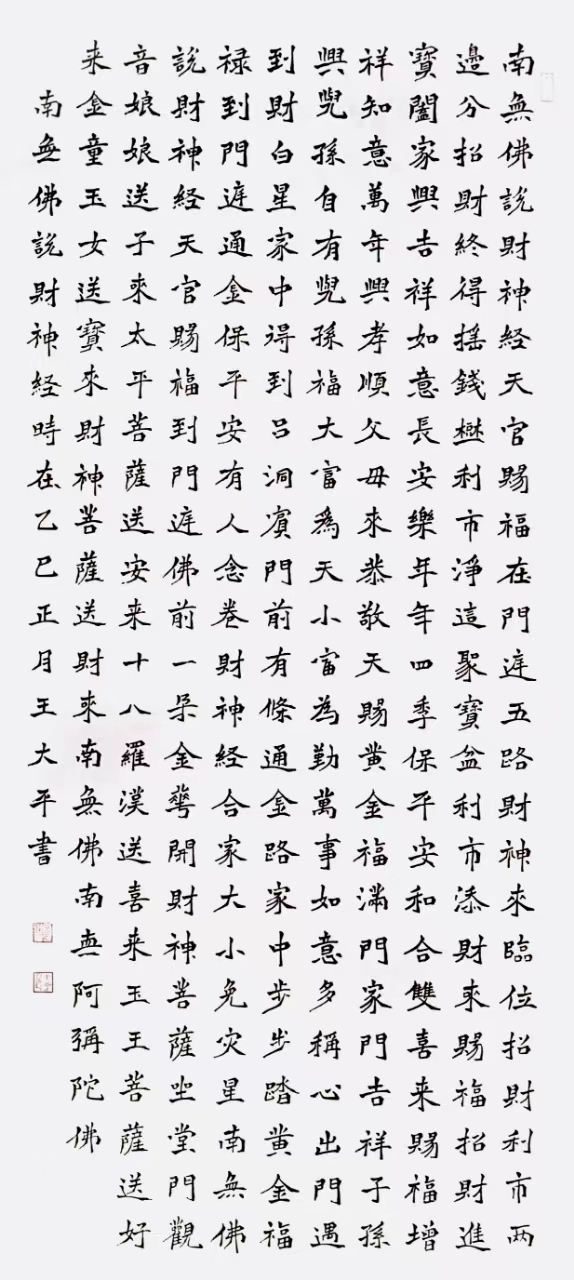 南無佛説財神経天官賜福在門庭五路財神來臨位招財利市兩
邊分招財終得搖錢樹利市淨這聚寶盆利市添財來賜福招財進
寶闔家興吉祥如意長安樂年年四季保平安和合雙喜来賜福增
祥知意萬年興孝順父母來恭敬天賜黄金福滿門家門吉祥子孫
興兒孫自有兒孫福大富爲天小富為勤萬事如意多稱心出門遇
到財白星家中得到吕洞賓門前有條通金路家中步步踏黄金福
禄到門庭通金保平安有人念卷財神経合家大小免灾星南無佛
說財神経天官賜福到門庭佛前一朵金蕚開財神菩薩坐堂門觀
音娘娘送子來太平菩薩送安来十八羅漢送喜来玉王菩薩送好
来金童玉女送寶來財神菩薩送財来南無佛南無阿彌陀佛
南無佛説財神経時在乙巳正月王大平書